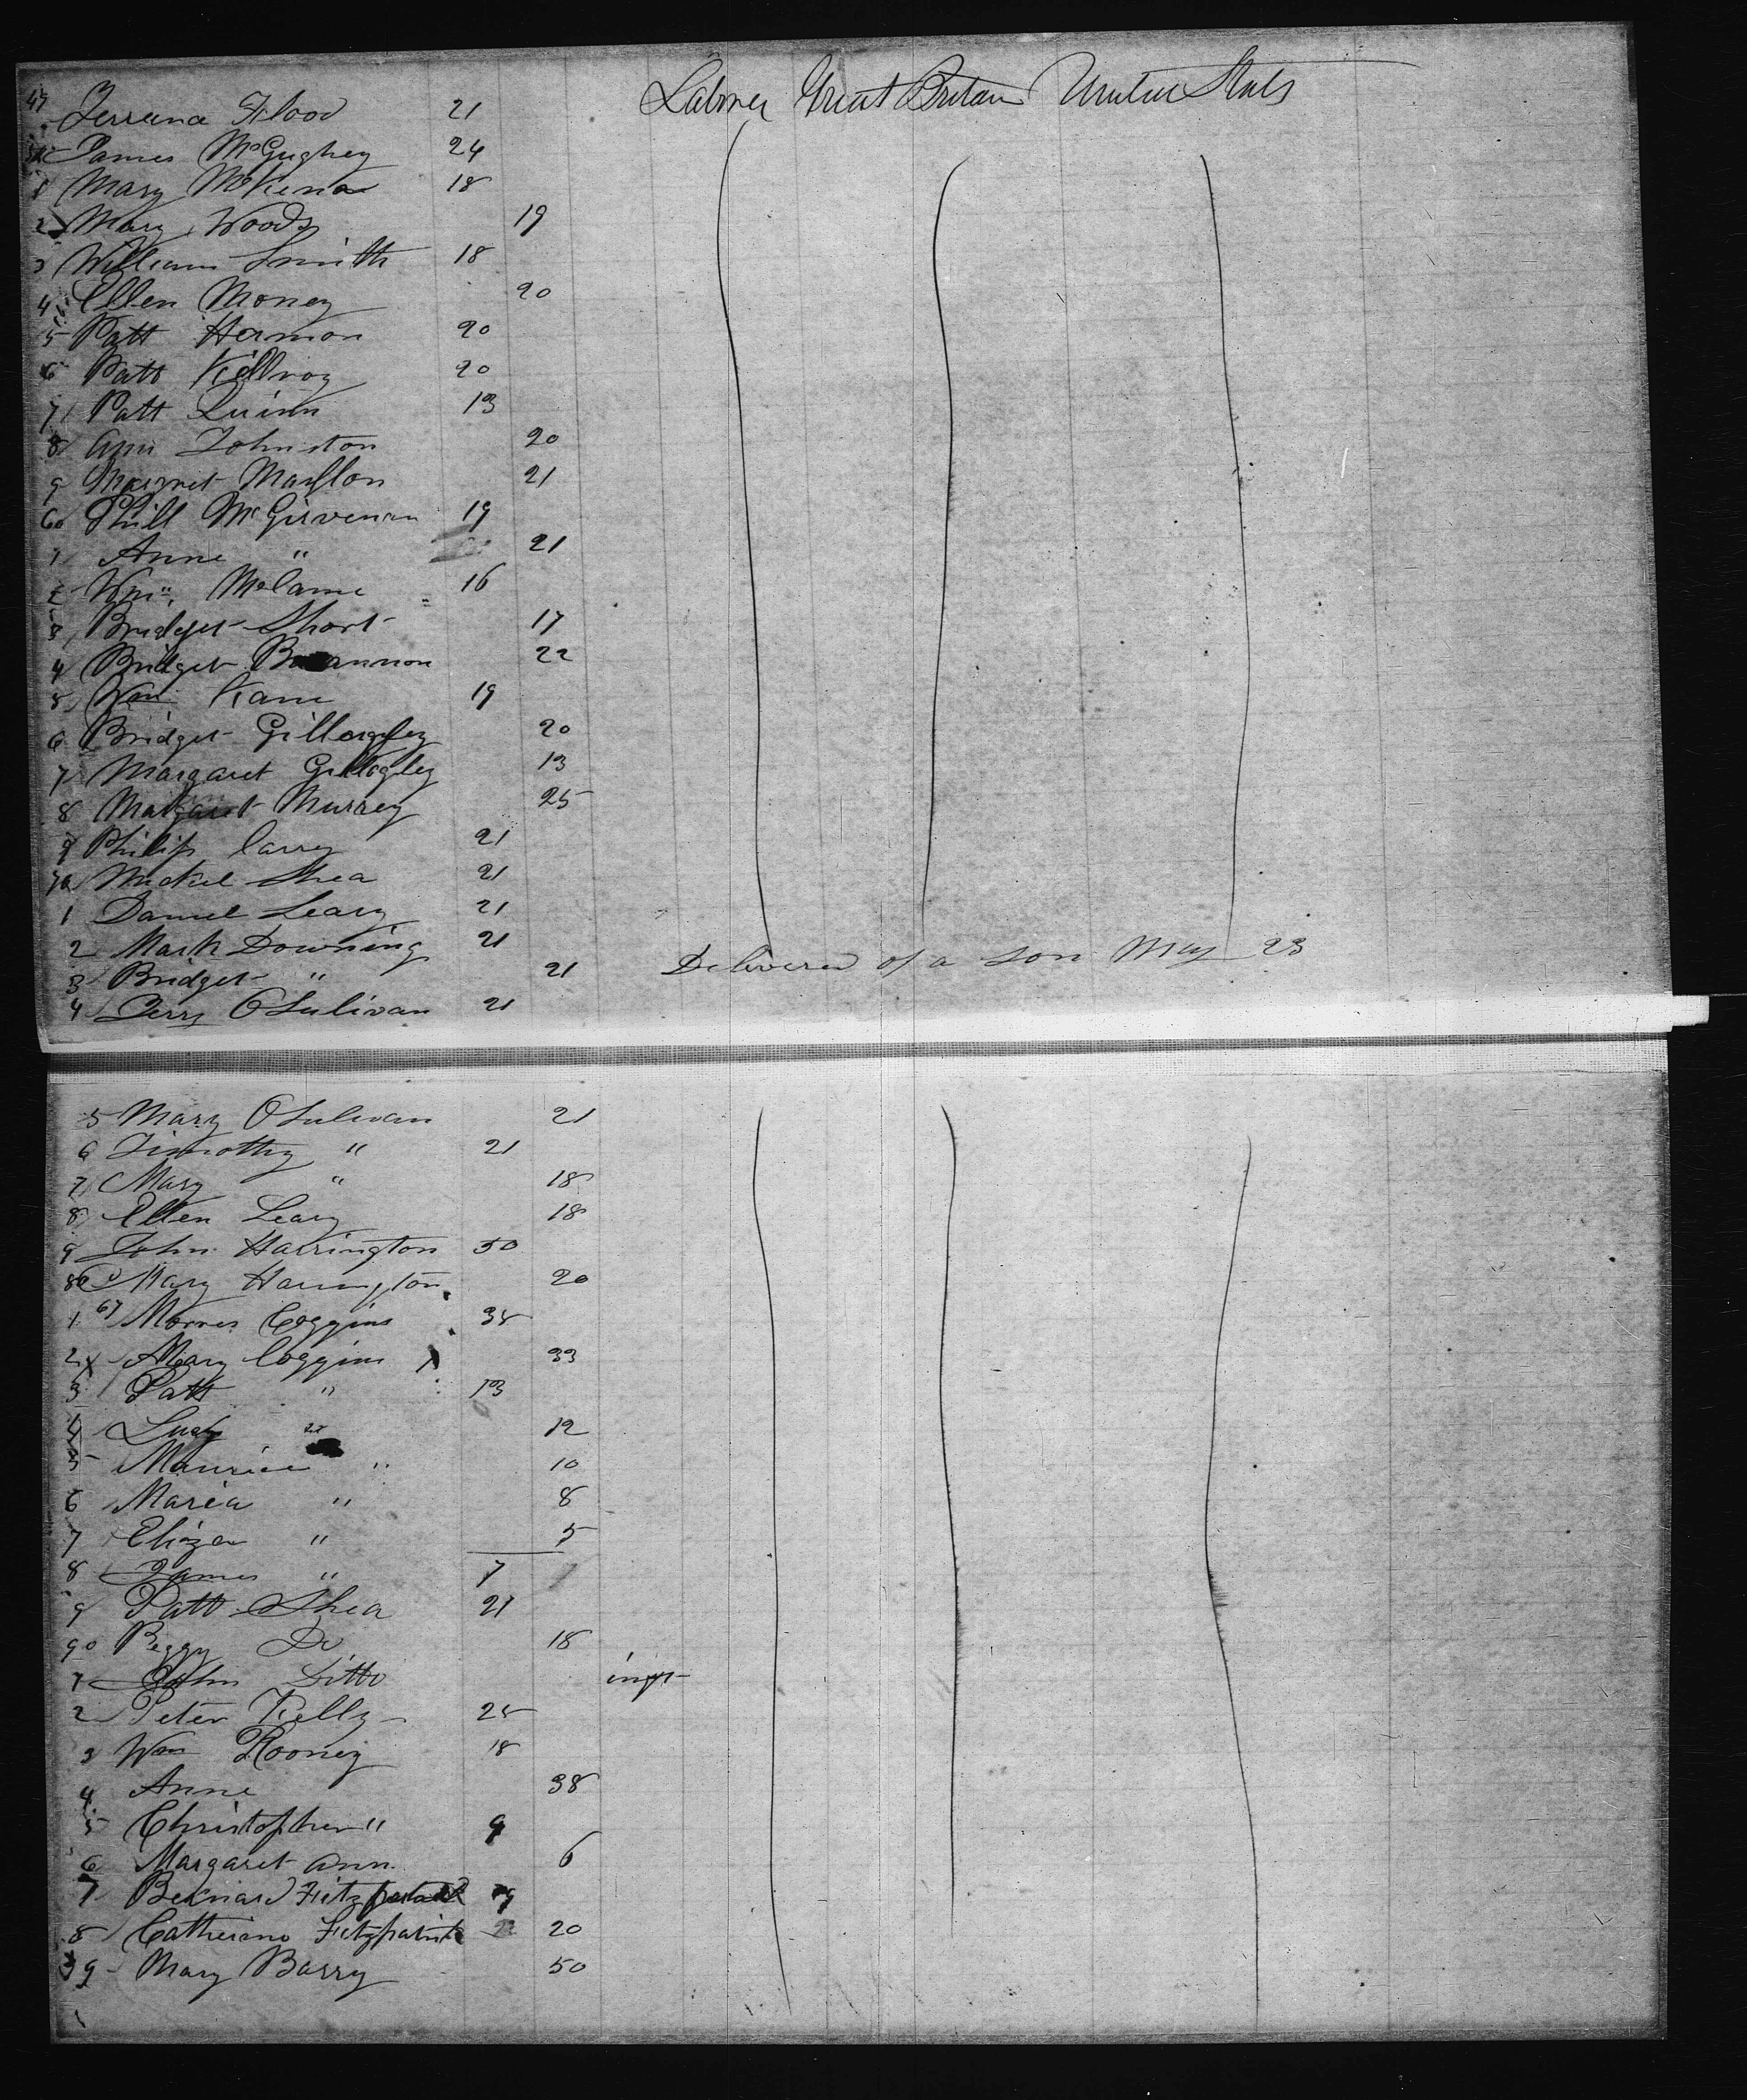 Labrer Great Britain United Stats
47 Terrena Flood 21
James McGughey 24
1 Mary McKena 18
2 Mary Woods 19
3 William Smith 18
4 Ellen Money 20
5 Patt Harmon 20
6 Patt Killroy 20
7 Patt Quinn 13
8 Ann Johnston 20
9 Margret Marllon 21
60 Phill McGirvenan 19
1 Anne " 21
2 Wm McLame 16
3 Bridget Short 17
4 Bridget Brannon 22
5 Wm Kane 19
6 Bridget Gillagley 20
7 Margaret Gillagley 13
8 Margaret Murrey 25
9 Philip Carry 21
70 Mickel Shea 21
1 Daniel Leary 21
2 Mark Downing 21
3 Bridget " 21 Delivered of a son May 23
4 Jerry OSulivan 21
5 Mary OSulivan 21
6 Timothy " 21
7 Mary " 18
8 Ellen Leary 18
9 John Harrington 50
80 Mary Harrington 20
1 67 Morres Coggins 35
2 x Mary Coggins 33
3 Patt " 13
4 Judy " 12
5 Maurice " 10
6 Maria " 8
7 Eliza " 5
8 James " 7
9 Patt Shea 21
90 Peggy Do 18
1 John Ditto inft
2 Peter Kelly 25
3 Wm Rooney 18
4 Anne 38
5 Christopher " 9
6 Margaret Ann 6
7 Bernard Fitzpatrick 9
8 Catherine Fitzpatrick 20
9 Mary Barry 50